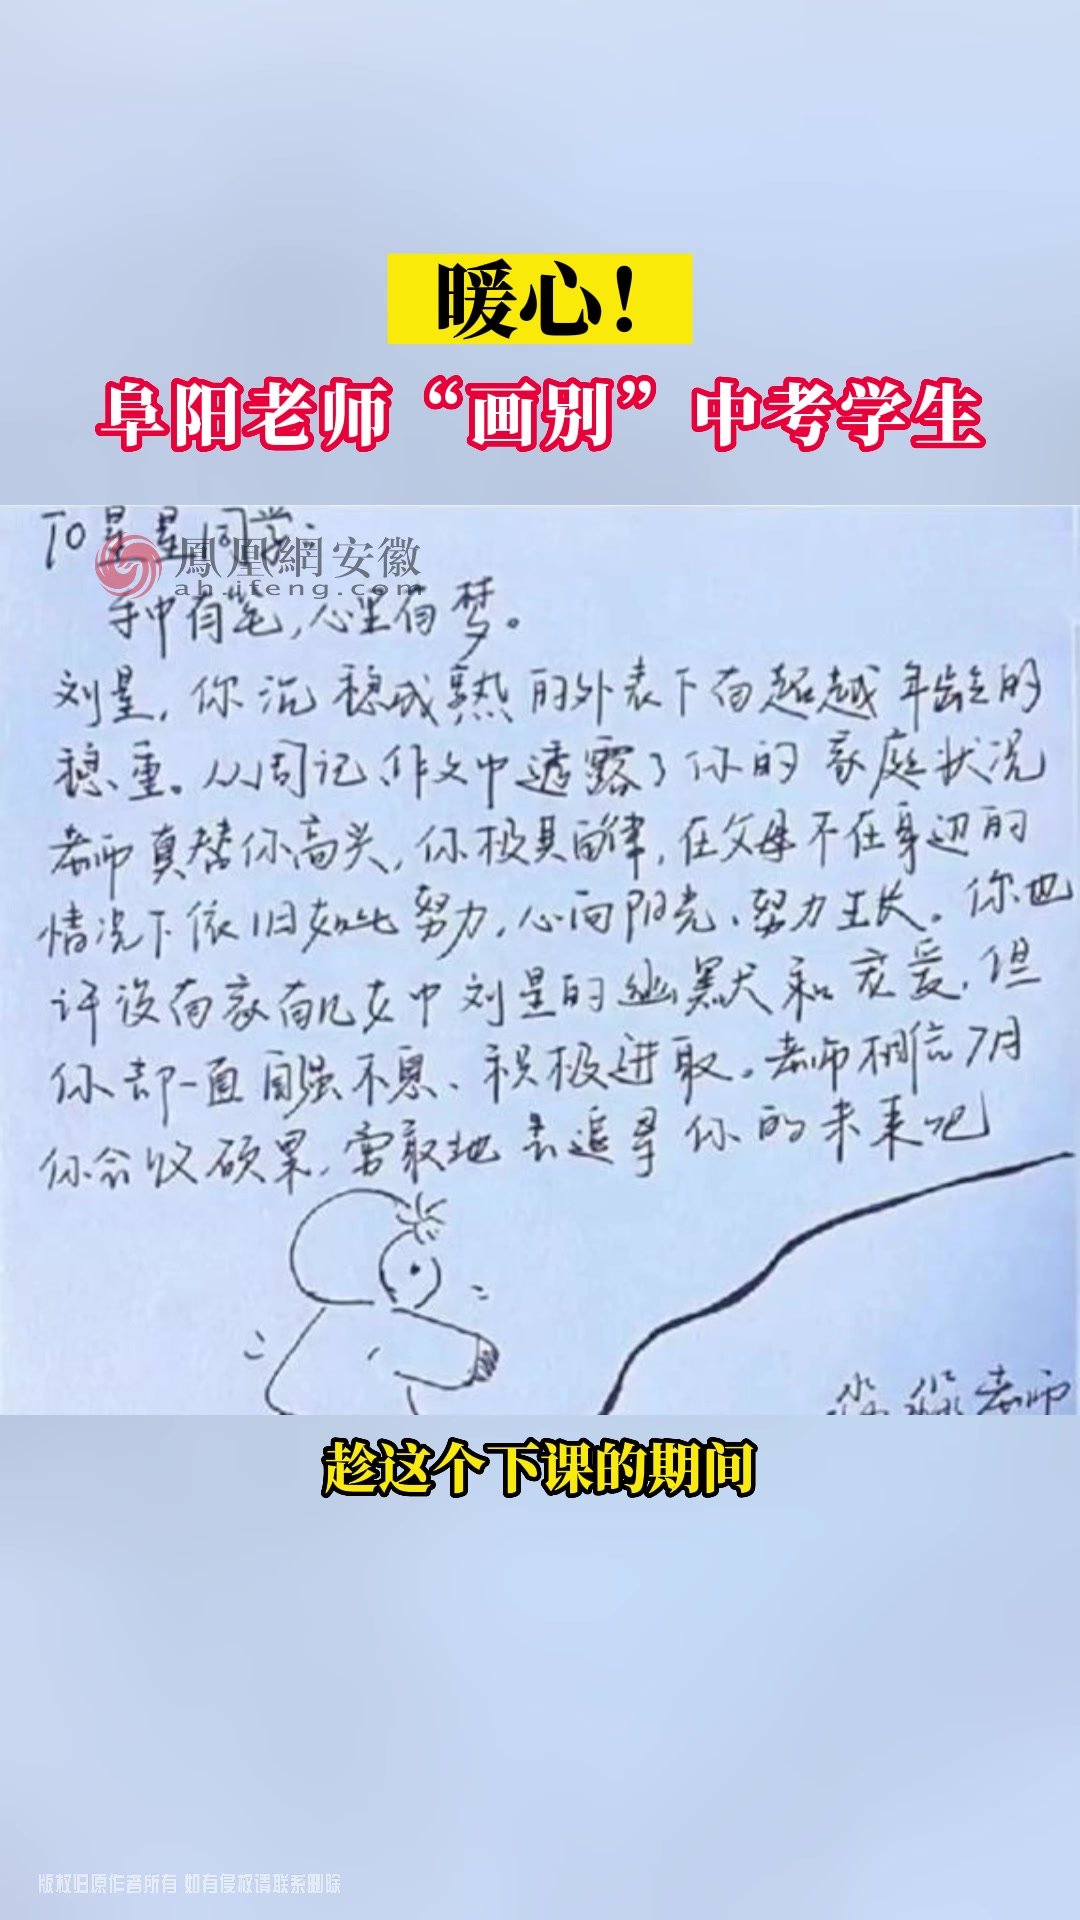 暖心!
阜阳老师“画别”中考学生
TO星星同学:
鳳凰網安徽
ah.ifeng.com
手中有笔,心里有梦。
刘星,你沉稳成熟的外表下有超越年龄的
稳重。从周记、作文中透露了你的家庭状况
老师真替你高兴,你极具自律,在父母不在身边的
情况下依旧如此努力,心向阳光、努力生长。你也
许没有家有儿女中刘星的幽默和宠爱,但
你却一直自强不息、积极进取。老师相信7月
你会收硕果,勇敢地去追寻你的未来吧
淼淼老师
趁这个下课的期间
版权归原作者所有 如有侵权请联系删除